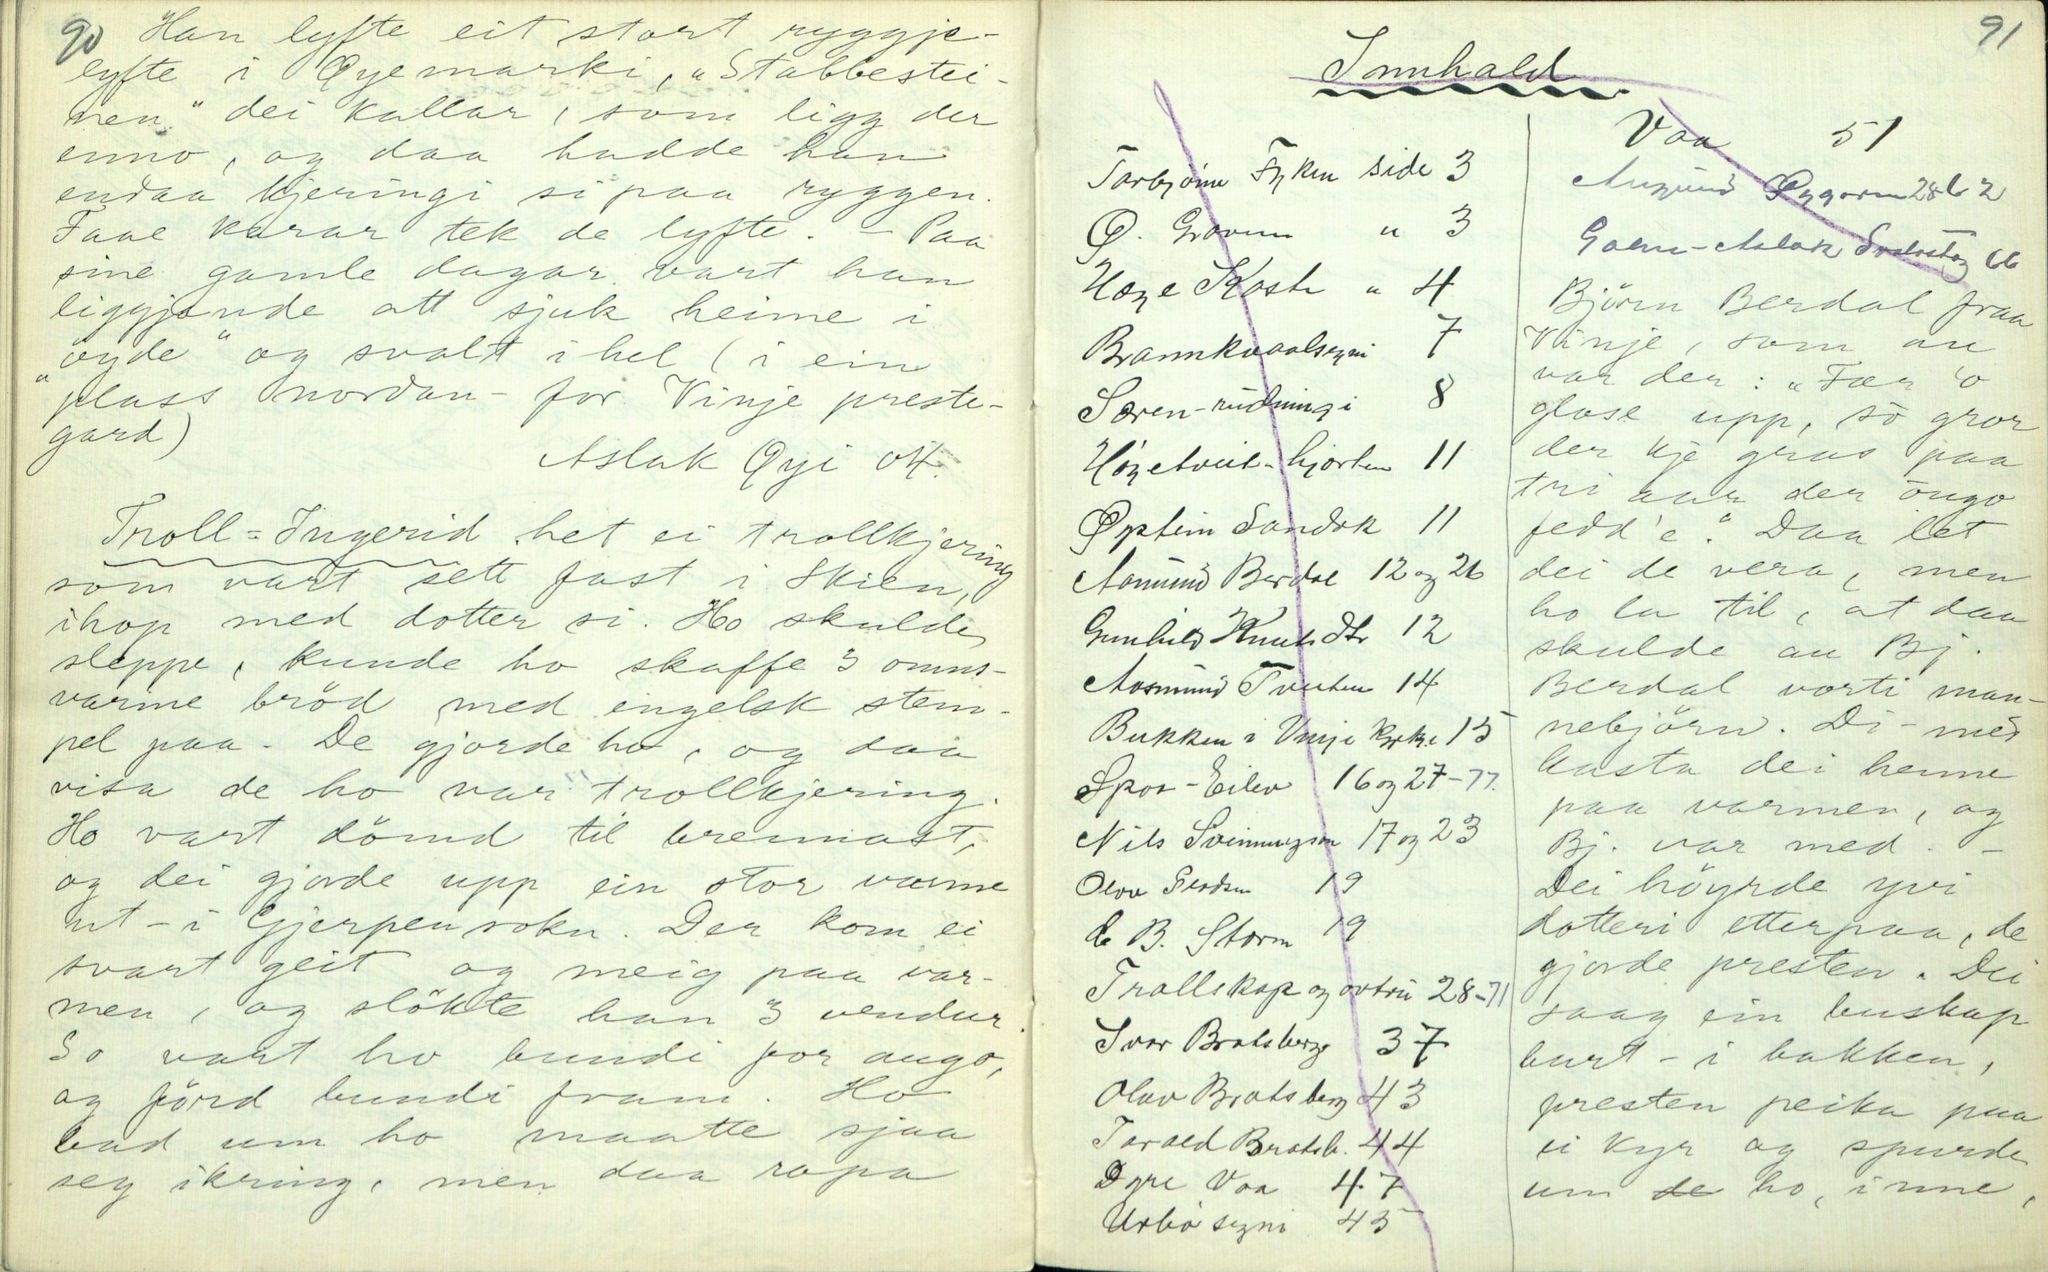 90 Han lyfte eit stort ryggje-
lyfte i Øyemarki, "Stabbestei-
nen" dei kallar, som ligg der
enno, og daa hadde han
endaa kjeringi si paa ryggen.
Faae karar tek de lyfte. - Paa
sine gamle dagar vart han
liggjande att sjuk heime i
"øyde" og svalt ihel (i ein
plass nordan-for Vinje preste-
gard)
Aslak Øyi 04.
Troll-Ingerid het ei trollkjering
som vart sett fast i Skien,
ihop med dotter si. Ho skulde
sleppe, kunde ho skaffe 3 omns-
varme brød med engelsk stem-
pel paa. De gjorde ho, og daa
visa de ho var trollkjering.
Ho vart dömd til brennast,
og dei gjorde upp ein stor varme
ut-i Gjerpensokn. Der kom ei
svart geit og meig paa var-
men, og slökte han 3 vendur.
So vart ho bundi for augo,
og förd bundi fram. Ho
bad um ho maatte sjaa
seg ikring, men daa ropa
91
Innhald
Torbjönn Fyken side 3
Ø. Gravem " 3
Hoge Kaste " 4
Brannkvaalsegni 7
Søren-rudningi 8
Högetveit-hjorten 11
Øystein Sandok 11
Aamund Berdal 12 og 26
Gunhild Knutsdtr 12
Aasmund Tveiten 14
Bukken i Vinje kyrkje 15
Spor-Eilev 16 og 27-77.
Nils Sveinungson 17 og 23
Olov 19
B. Storm 19
Trollskap og ovtru 28-71
Ivar Bratsberg 37
Olav Bratsberg 43
Tarald Bratsb. 44
Dyre Vaa 47
Urbösegni 45
Vaa 51
Aasmund Øygarden 28 62
Galne-Aslak 66
Björn Berdal fraa
Vinje, som au
var der: "Fær 'o
glose upp, so gror
der kje gras paa
tri aar der augo
fedd'e." Daa let
dei de vera, men
ho la til, at daa
skulde au Bj.
Berdal vorti man-
nebjörn. Di-med
kasta dei henne
paa varmen, og
Bj. var med. -
Dei höyrde yvi
dotteri etterpaa, de
gjorde presten. Dei
saag ein buskap
burt-i bakken,
presten peika paa
ei kyr og spurde
um de ho, inne,